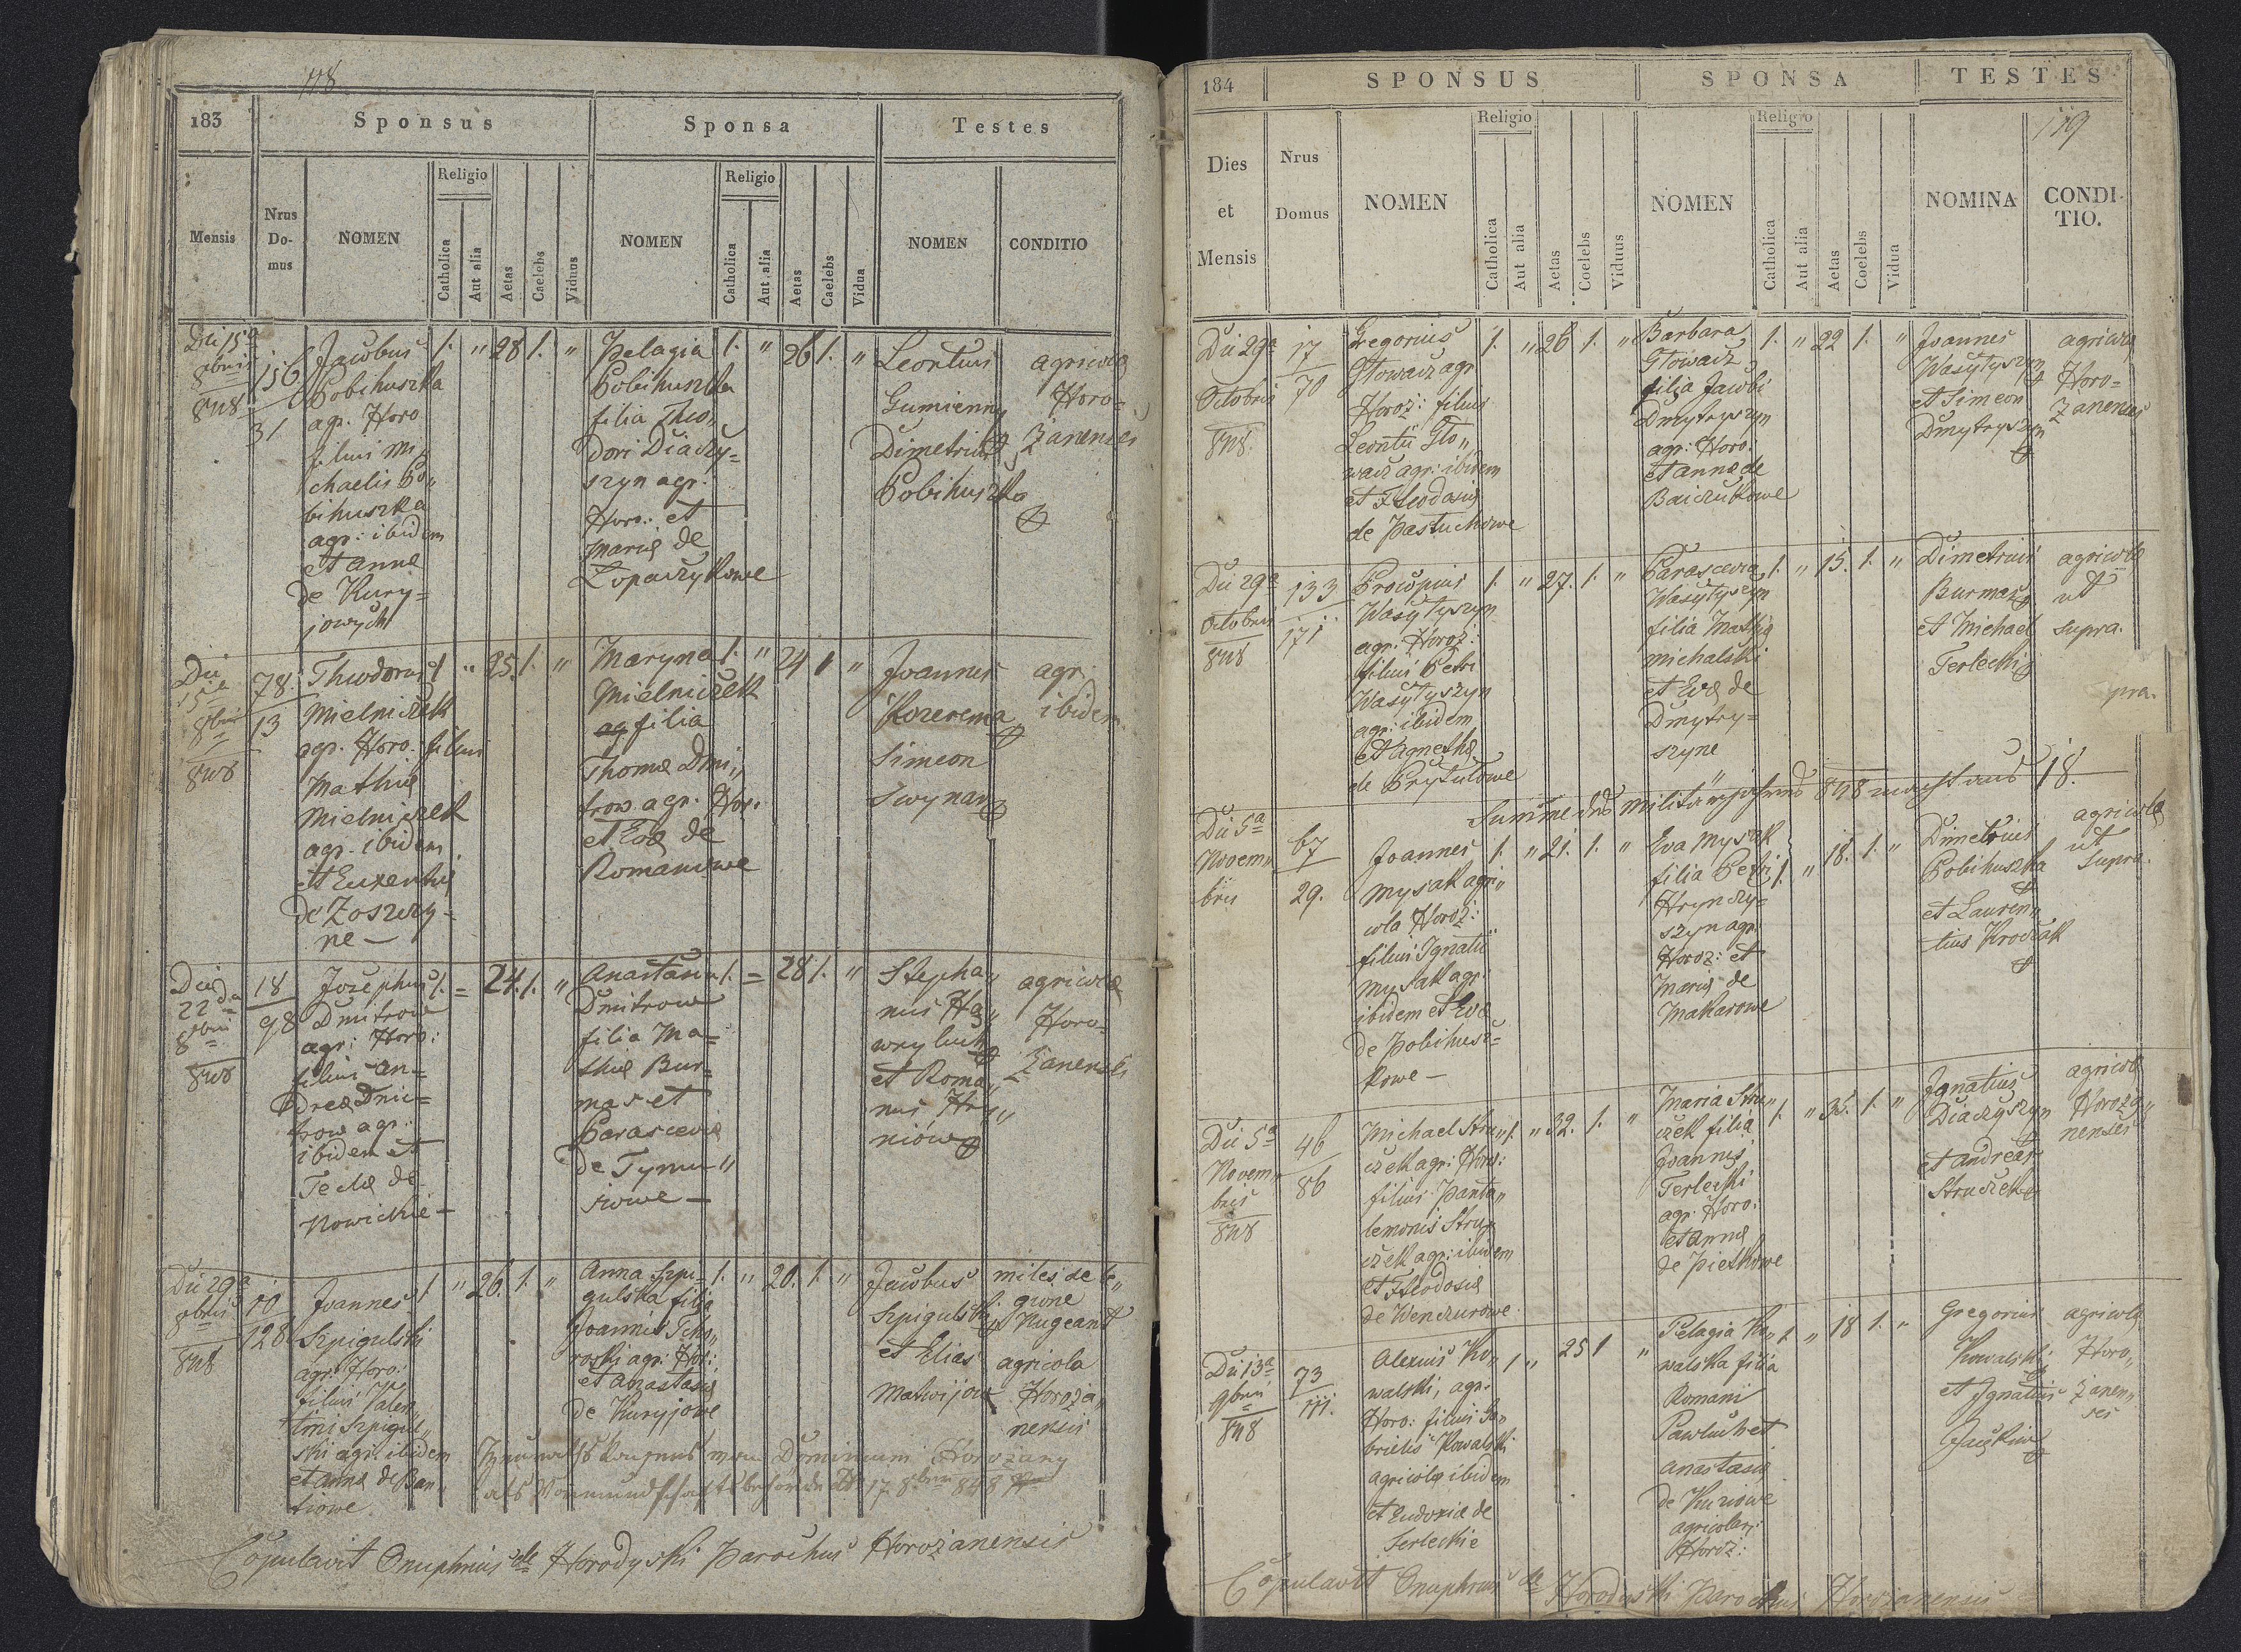 118
183
Sponsus
Sponsa
Testes
Mensis
Nrus
Do-
mus
NOMEN
Religio
Catholica
Aut alia
Aetas
Caelebs
Viduus
NOMEN
Religio
Catholica
Aut alia
Aetas
Caelebs
Vidua
NOMEN
CONDITIO
Die 15a
8bris
848
156
31
Jacobus
Pobihuszka
agr. Horo
filius Mi
chaelis Po„
bihuszka
agr: ibidem
et Anna
de Kury=
jowych
1. „ 28 1. „
Pelagia
Pobihuszka
filia Theo„
dori Diaczy=
szyn agr.
Horo: et
Maria de
Lopaczykowe
1. „ 26 1. „
Leontius
Gumienny
Dimetrius
Pobihuszka
agricola
Horo=
żanensis
Die
15a
8bris
848
78.
13
Theodorus
Mielniczek
agr. Horo. filius
Mathiæ
Mielniczek
agr. ibidem
et
de
ne —
1. „ 25. 1. „
Maryna
Mielniczek
ag filia
Thomæ Dmi„
trow agr. Hor:
et Eva de
Romanowe
1. „ 24 1 „
Joannes
Korerema
Simeon
agr.
ibidem
Die
22da
8bris
848
18
98
Josephus
Dmitrow
agr: Horo:
filius An=
dreæ Dmi=
trow agr:
ibidem et
Teclæ de
Nowickie —
1. = 24. 1. „
Anastasia
Dmitrow
filia Ma=
thiæ Bur=
mas et
Parascevia
de Tymu„
siowe —
1. = 28 1. „
Stepha„
nus Ha„
wryluk
et Roma„
nus Hry„
niów
agricola
Horo=
żanensis
Die 29a
8bris
848
10
128
Joannes
Szpigulski
agr: Horo:
filius Valen„
tini Szpigul„
ski agr. ibidem
et Anna de Ban„
1 „ 26. 1. „
Anna Szpi=
gulska filia
Joannis
agr: Hor:
et Anastasia
de Kuryjowe
1. „ 20. 1. „
Jacobus
Szpigulski
et Elias
Matwijow
miles de le„
gione
Nugeant
agricola
Horoża„
nensis
Dominium Horożany
17 8bris 848
Copulavit Onuphrius de Horodyski Parochus Horożanensis
184
SPONSUS
SPONSA
TESTES
119
Dies
et
Mensis
Nrus
Domus
NOMEN
Religio
Catholica
Aut alia
Aetas
Coelebs
Viduus
NOMEN
Religio
Catholica
Aut alia
Aetas
Coelebs
Vidua
NOMINA
CONDI-
TIO.
Die 29a
Octobris
848
17
70
Gregorius
Głowacz agr
Horoż: filius
Leontii Gło„
wacz agr: ibidem
et Theodosia
de Pastuchowe
1. „ 26 1. „
Barbara
Głowacz
filia Jacobi
Dmytryszyn
agr: Horo:
et Anna de
Baiczukowe
1. „ 22 1. „
Joannes
Wasylyszyn
et Simeon
Dmytryszyn
agricola
Horo=
żanensis
Die 29a
Octobris
848
133
171
Procopius
Wasylyszyn
agr. Horoż:
filius Petri
Wasylyszyn
agr: ibidem
et Agnetha
de Prytułowe
1. „ 27. 1. „
Parascevia
Wasylyszyn
filia Mathia
Michalski
et Eva de
Dmytry=
szyne
1. „ 15. 1. „
Dimetrius
Burmas
et Michael
Terlecki
agricola
ut
supra.
pra.
Summe des Militärjahres 848 18.
Die 5a
Novem„
bris
67
29.
Joannes
Mysak agri„
cola Horoż:
filius Ignatii
Mysak agr.
ibidem et Eva
de Pobihusz=
kowe —
1. „ 21. 1. „
Eva Mysak
filia Petri
Hrynczy=
szyn agr.
Horoż: et
Maria de
Makarowe
1. „ 18. 1. „
Dimetrius
Pobihuszka
et Lauren„
tius Krodiak
agricola
ut
supra.
Die 5a
Novem„
bris
848
46
86
Michael Stru„
czek agr: Horo:
filius Panta„
lemonis Stru„
czek agr: ibidem
et Theodosia
de Wenczurowe
1. „ 32. 1. „
Maria Stru„
czek filia
Joannis
Terlecki
agr. Horo:
et Anna
de Pietkowe
1. „ 35. 1. „
Ignatius
Diaczyszyn
et Andreas
Struczek
agricola
Horoża„
nensis
Die 13a
9bris
848
73
111.
Alexius Ko„
walski, agr.
Horo: filius Ga„
brielis Kowalski
agricola ibidem
et Eudoxia de
Terleckie
1 „ 25 1 „
Pelagia Ko„
walska filia
Romani
Pawluk et
Anastasia
de Kuriowe
agricolar:
Horoż:
1. „ 18 1. „
Gregorius
Kowalski
et Ignatius
Jaćkiw
agricola
Horo„
żanen„
ses
Copulavit Onuphrius de Horodyski Parochus Horożanensis